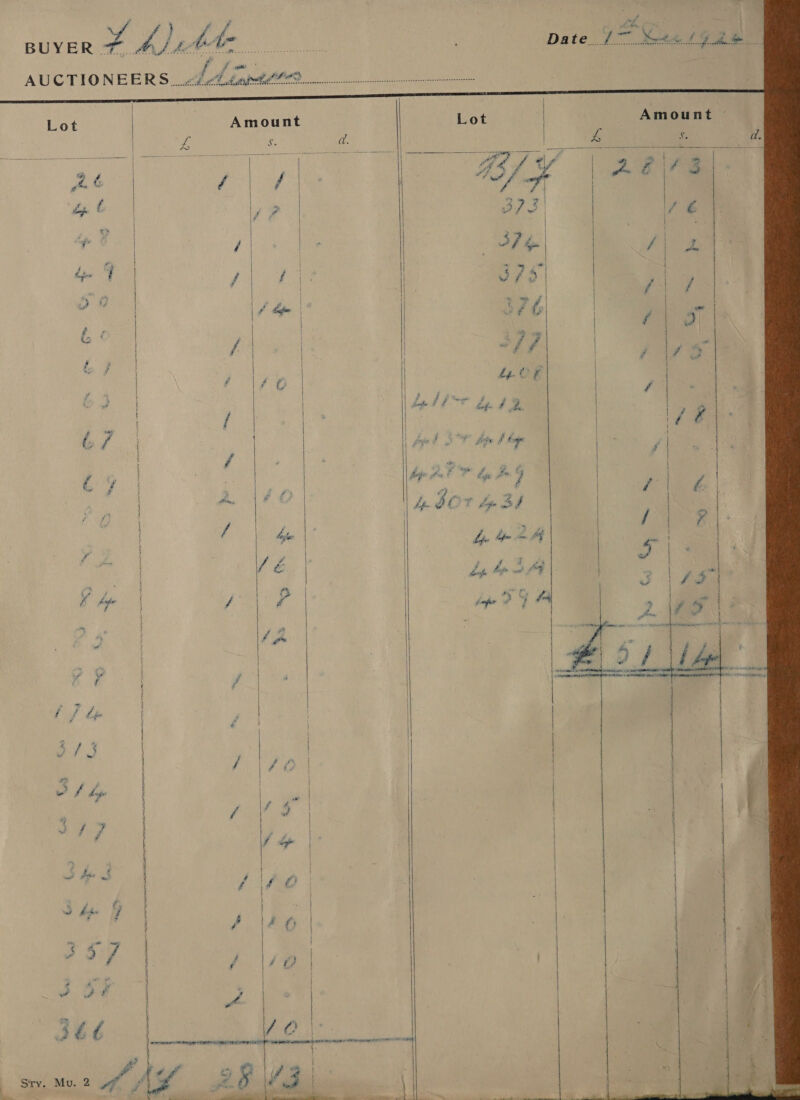 BUYER F Webb Date 9th Dec 1926
AUCTIONEERS
Lot Amount Lot Amount
£ s. d. £ s. d.
26 1 1 - B/F 28 13
46 18 373 16 -
48 1 - - 374 1 2
49 1 1 - 375 1 1
50 14 - 376 1 5
60 1 - 377 1 15
61 1 10 408 1 -
63 1 411 & 412 18 -
67 1 - - 413 & 414 1 - -
69 2 10 428 & 429 1 6
70 1 4 - 430 & 431 1 8 -
72 16 - 442A 5 - -
84 1 8 - 443A 3 15
85 12 - 459A 2 15 -
88 1 - £ 51 14 -
174 1
313 1 10
314 1 15
317 14 -
343 1 10
349 1 10
357 1 10
358 2 -
366 10 -
Sry. Mu. 2 C/F 28 13